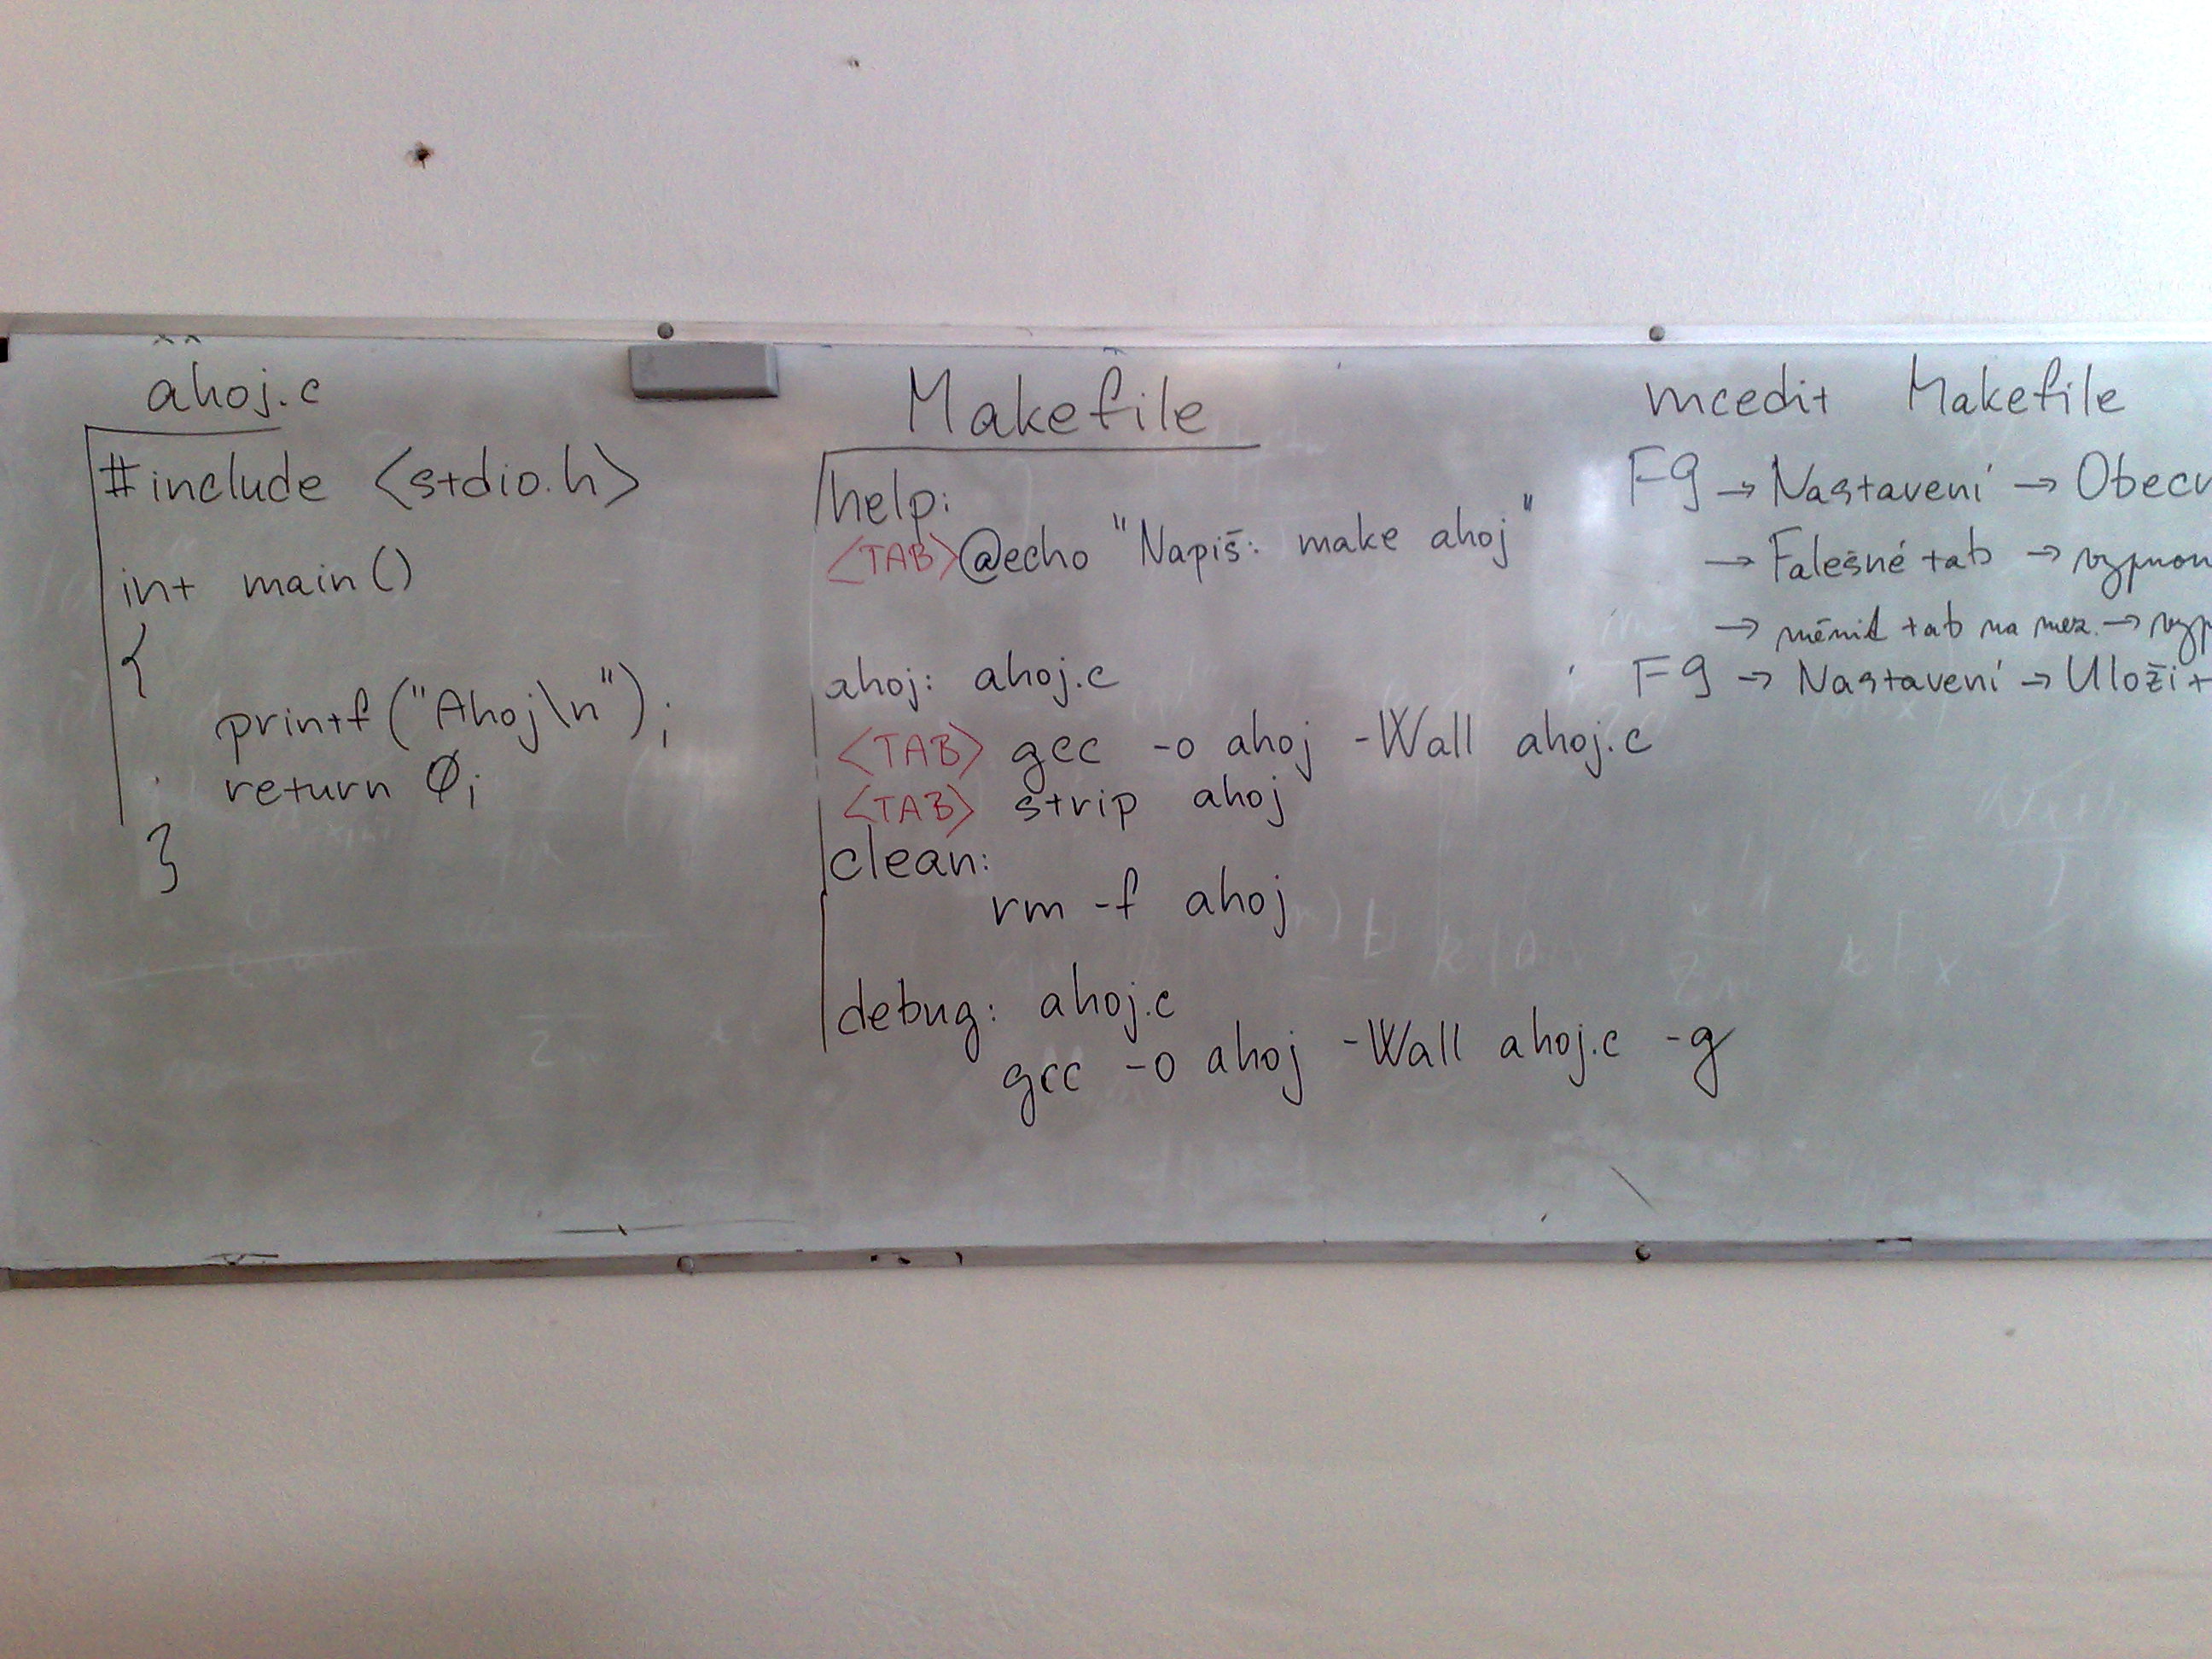 ahoj.c
#include <stdio.h>
int main()
{
printf("Ahoj\n");
return 0;
}
Makefile
help:
<TAB>@echo "Napiš: make ahoj"
ahoj: ahoj.c
<TAB> gcc -o ahoj -Wall ahoj.c
<TAB> strip ahoj
clean:
rm -f ahoj
debug: ahoj.c
gcc -o ahoj -Wall ahoj.c -g
mcedit Makefile
F9 → Nastavení → Obecn
→ Falešné tab → vypnou
→ měnit tab na mez. → vyp
F9 → Nastavení → Uložit